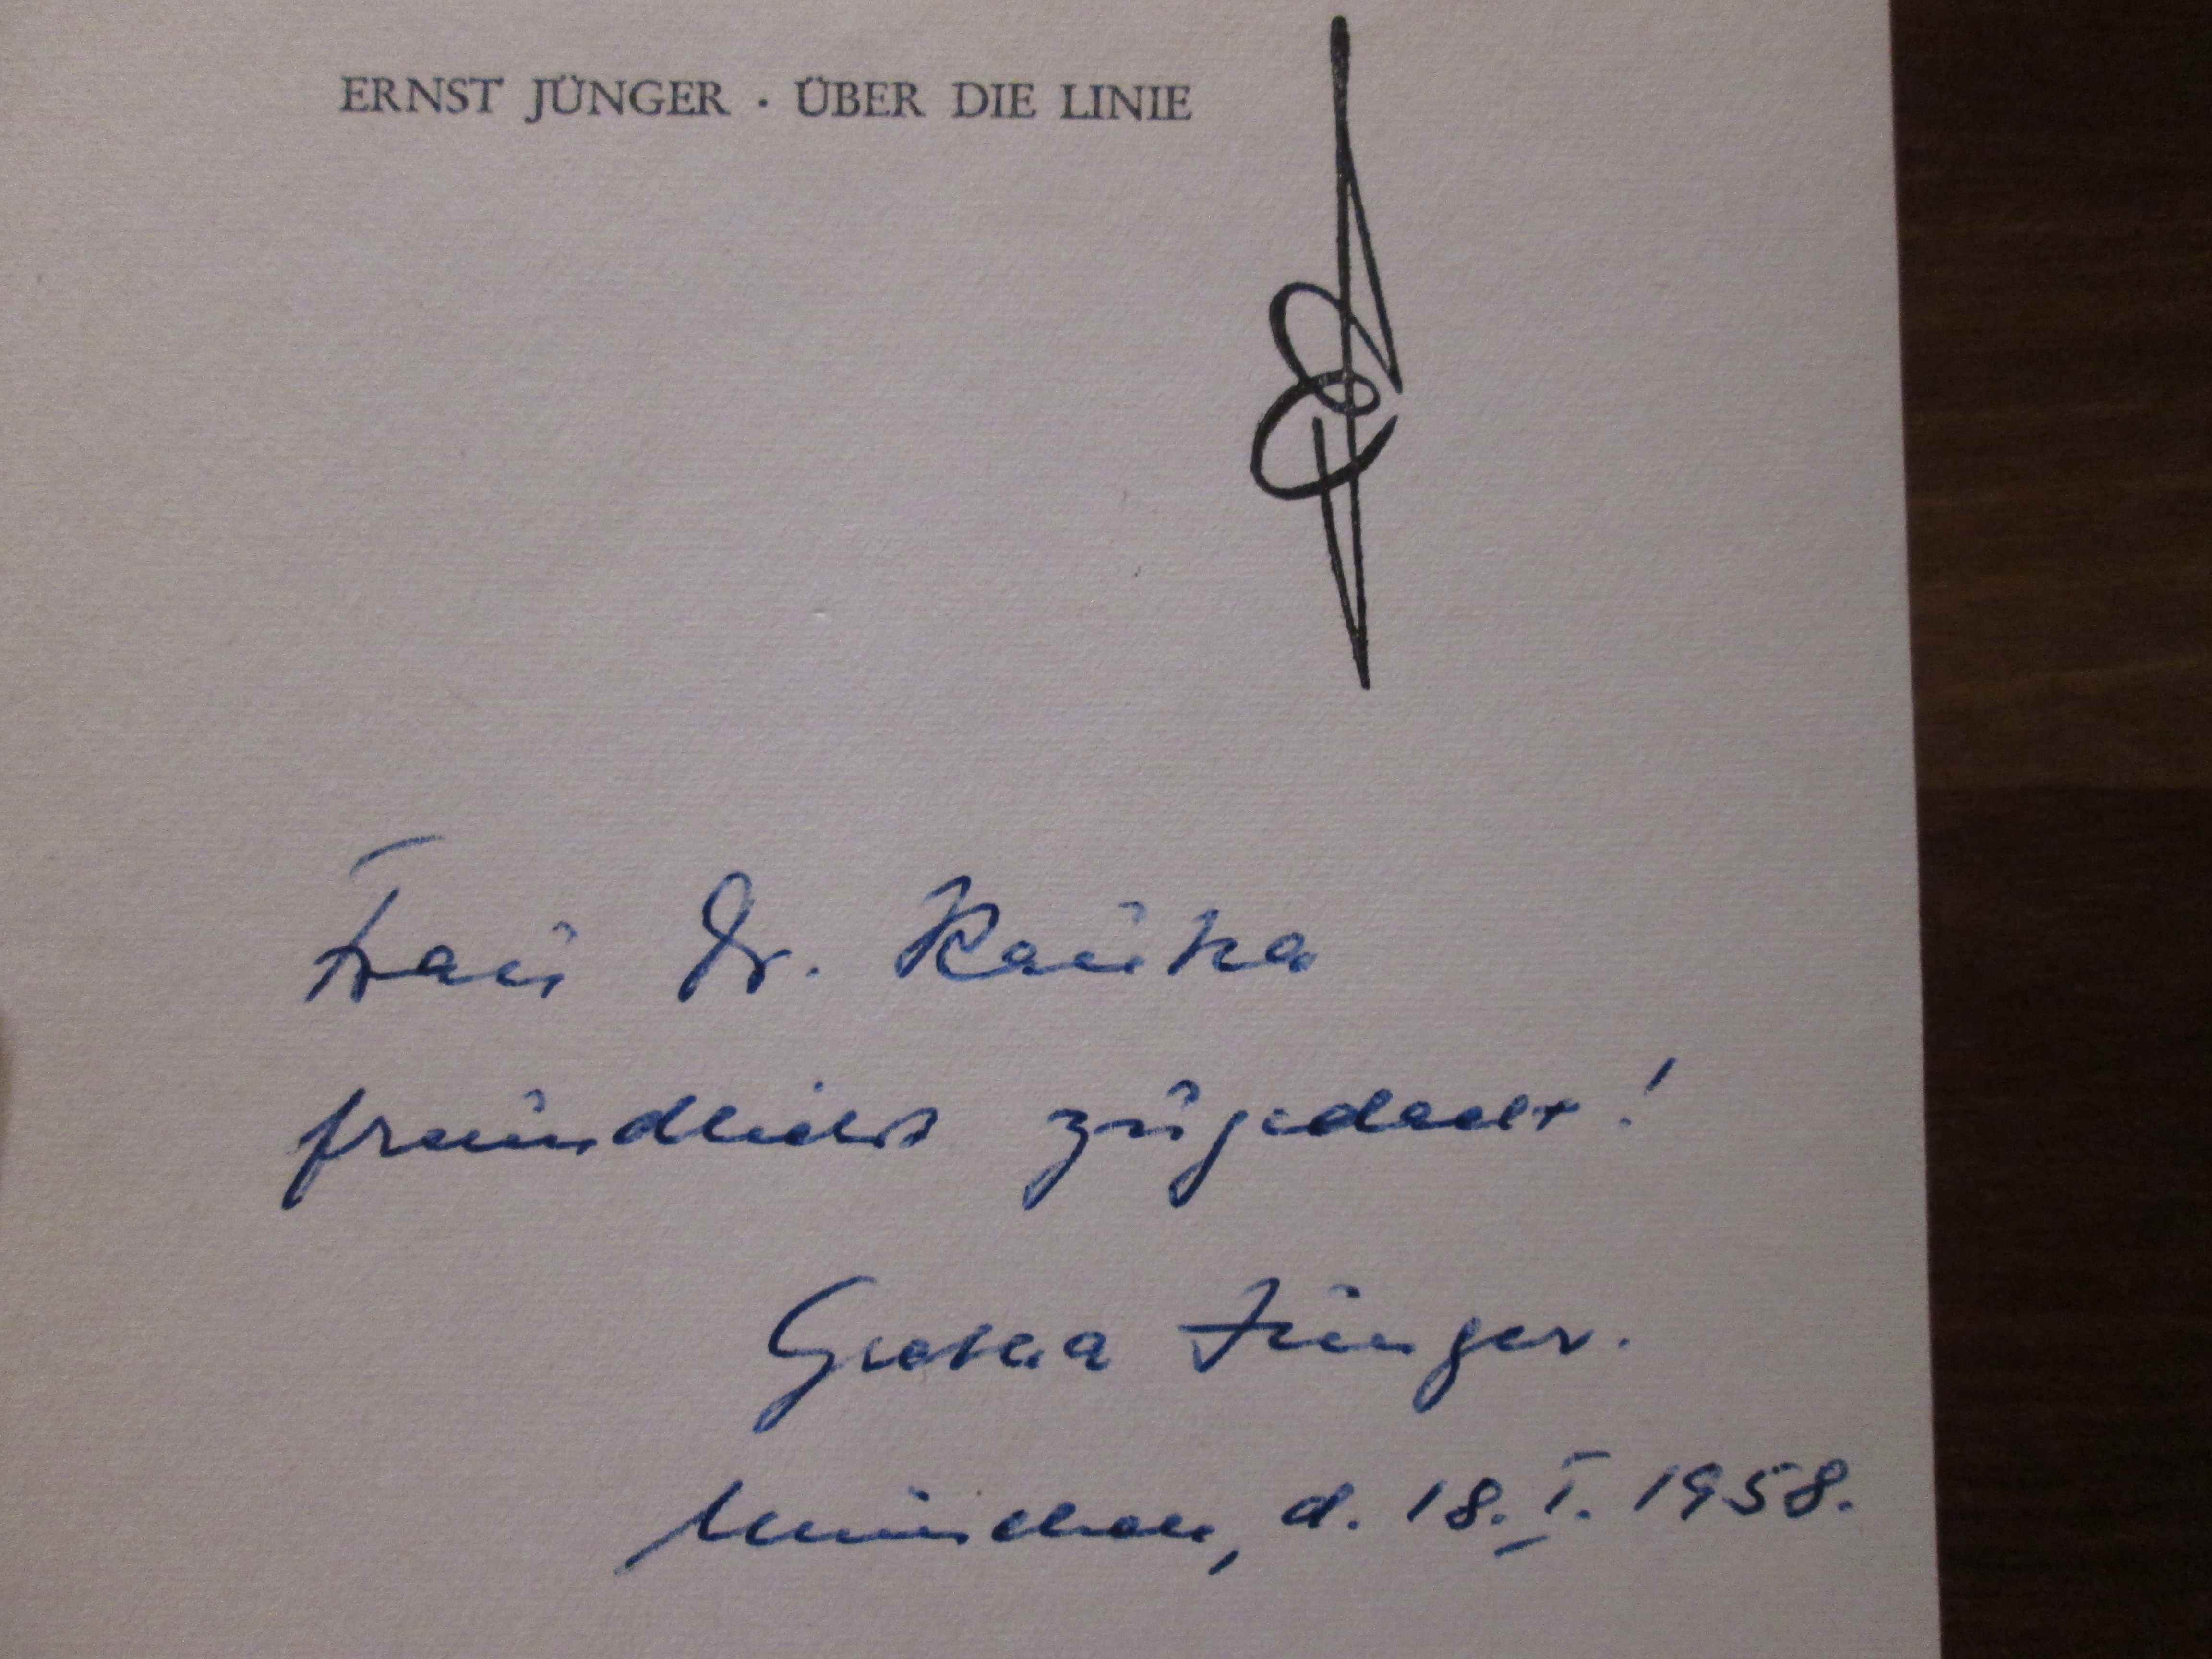 ERNST JÜNGER · ÜBER DIE LINIE
Frau Dr. Kauka
freundlichst zugedacht!
Gretha Jünger.
München, d. 18. I. 1958.